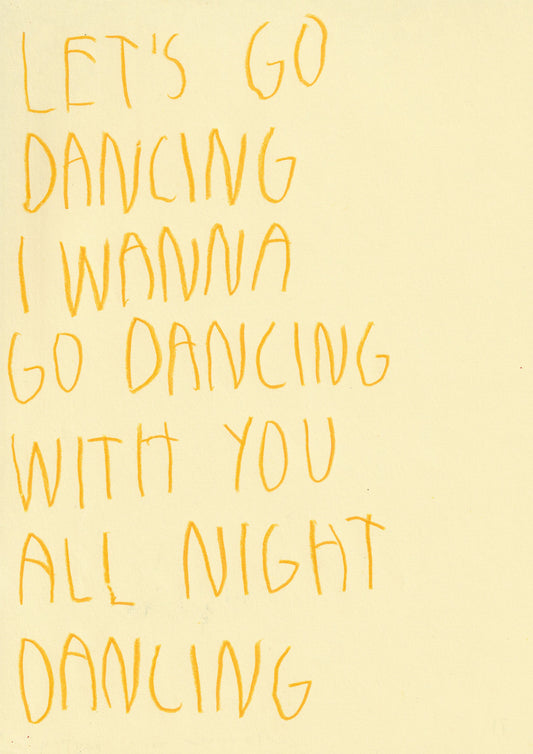 LET'S GO
DANCING
I WANNA
GO DANCING
WITH YOU
ALL NIGHT
DANCING